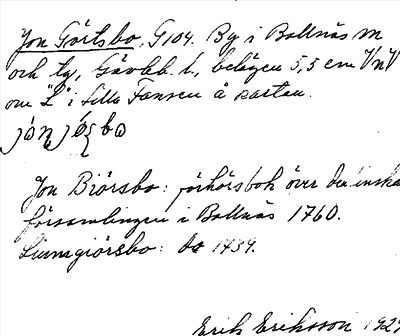 Jon Görtsbo, G104. By i Bollnäs sn
och tg, Gävleb. l., belägen 5,5 cm VnV
om "L" i Lilla Fansen å kartan.
Jon Biörsbo: förhörsbok över den inska
församlingen i Bollnäs 1760.
do 1739.
Erik Eriksson 192